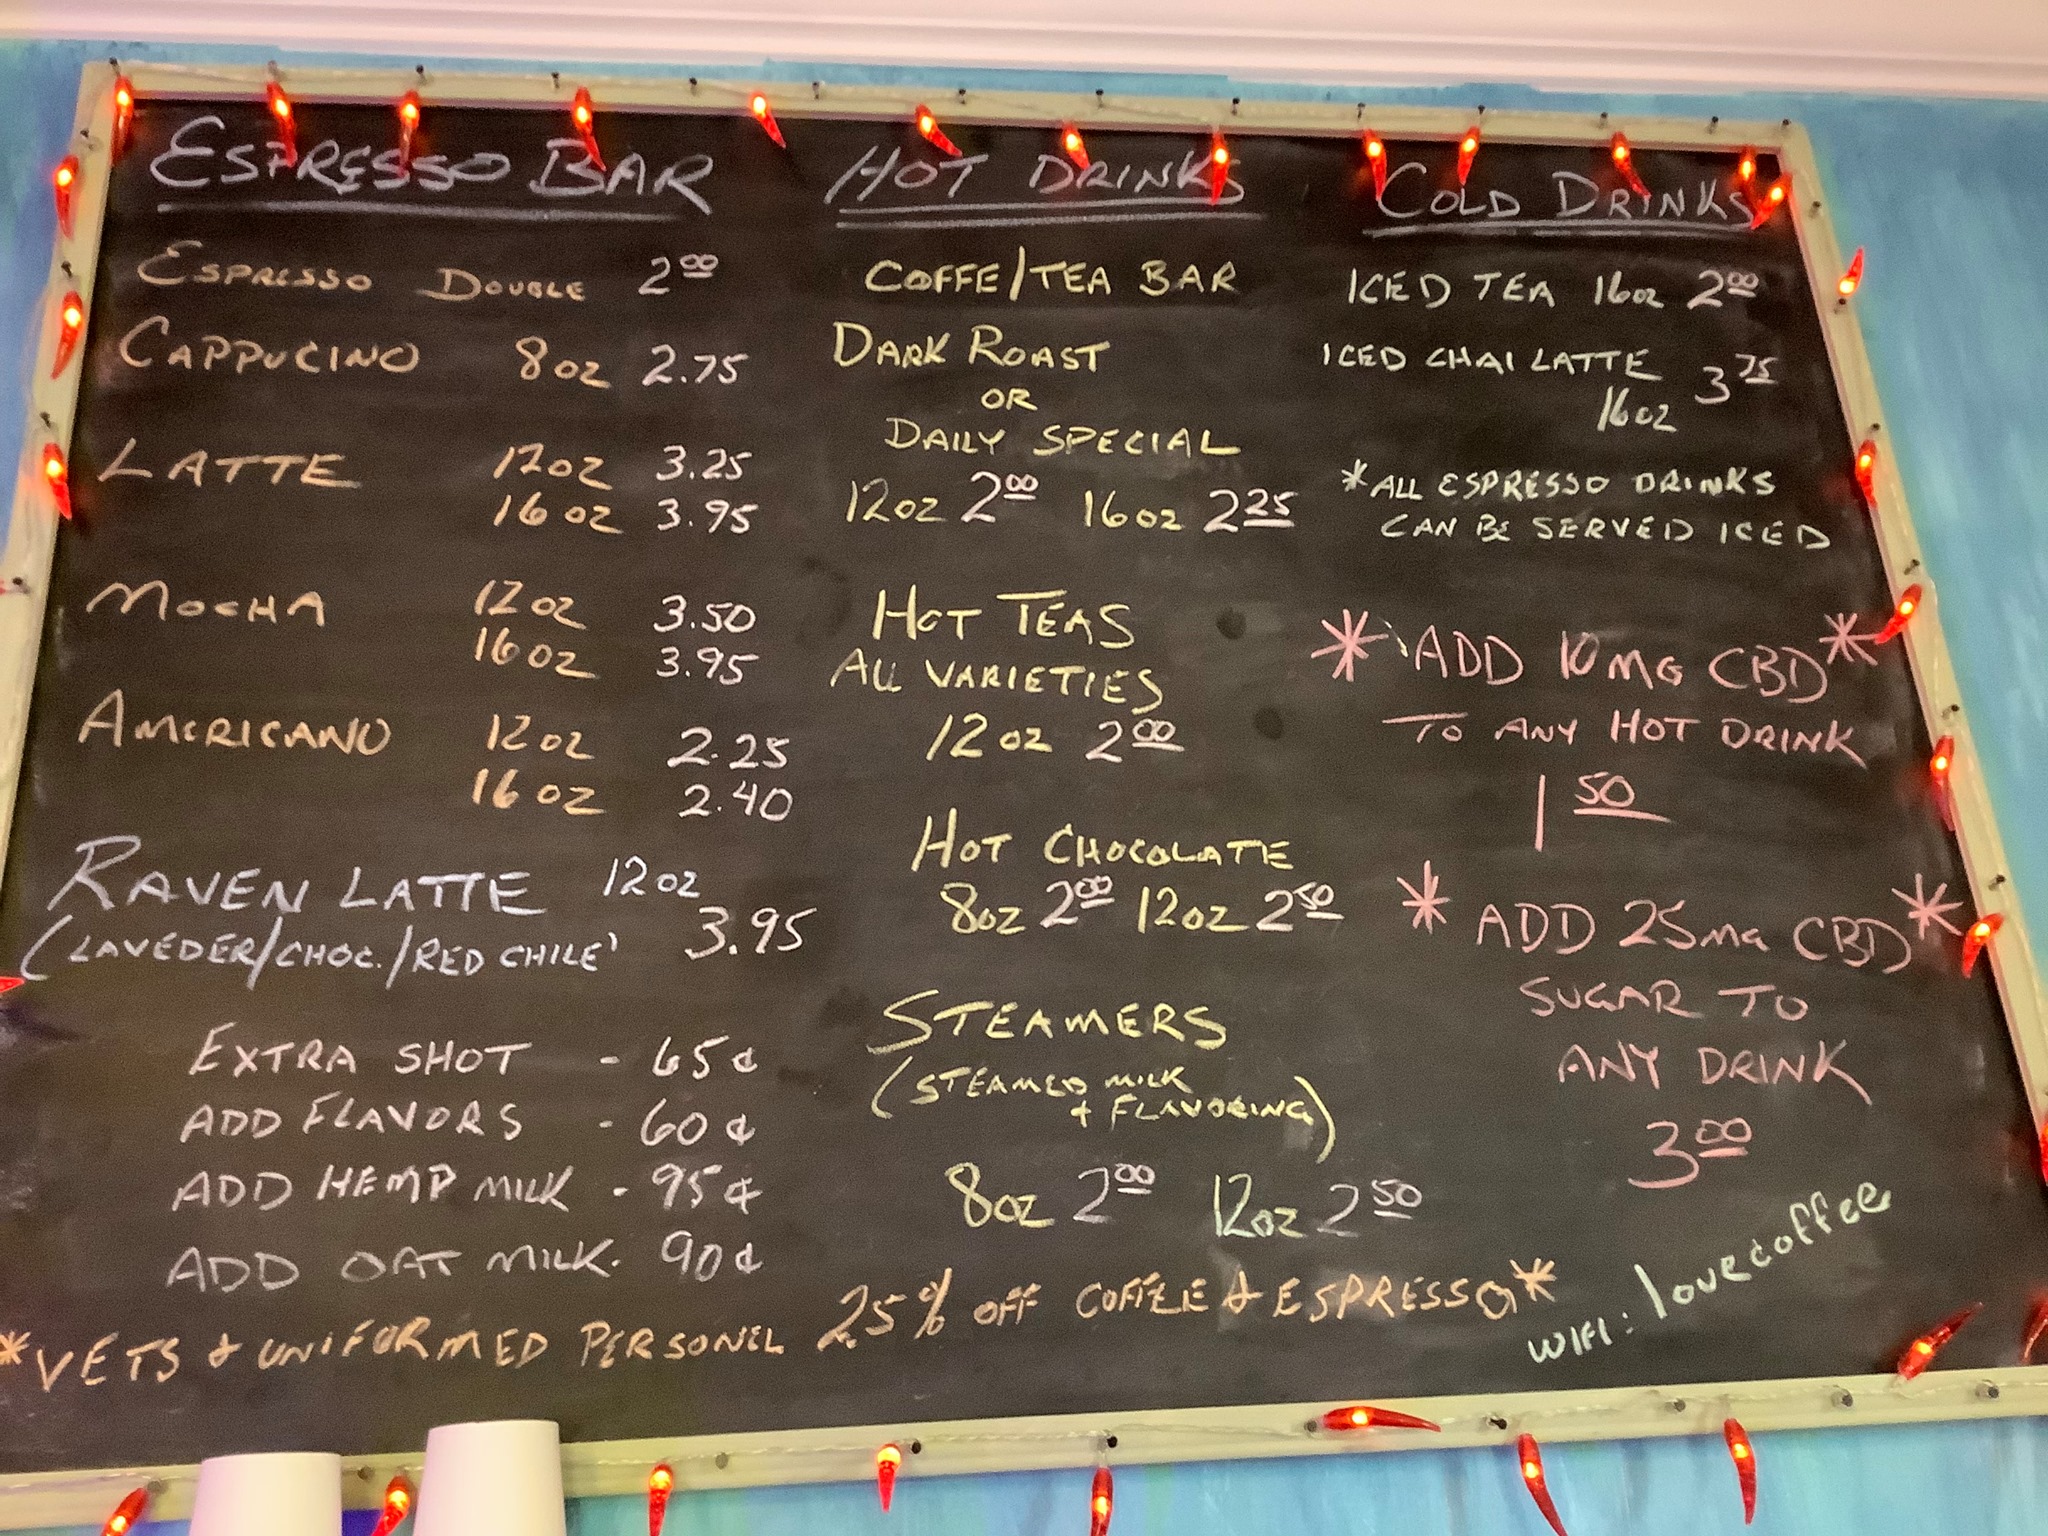 ESPRESSO BAR
ESPRESSO DOUBLE 2 00
CAPPUCINO 8oz 2.75
LATTE 12oz 3.25
16 oz 3.95
MOCHA 12oz 3.50
16oz 3.95
AMERICANO 12oz 2.25
16oz 2.40
RAVEN LATTE 12oz
(LAVEDER/CHOC./RED CHILE' 3.95
EXTRA SHOT - 65¢
ADD FLAVORS - 60¢
ADD HEMP MILK - 95¢
ADD OAT MILK. 90¢
HOT DRINKS
COFFE/TEA BAR
DARK ROAST
OR
DAILY SPECIAL
12oz 2 00 16oz 2 25
HOT TEAS
ALL VARIETIES
12oz 2 00
HOT CHOCOLATE
8oz 2 00 12oz 2 50
STEAMERS
(STEAMED MILK
+ FLAVORING)
8oz 2 00 12oz 2 50
COLD DRINKS
ICED TEA 16oz 2 00
ICED CHAI LATTE 3 75
16oz
*ALL ESPRESSO DRINKS
CAN BE SERVED ICED
* ADD 10MG CBD *
TO ANY HOT DRINK
1 50
* ADD 25mg CBD *
SUGAR TO
ANY DRINK
3 00
*VETS & UNIFORMED PERSONEL 25% OFF COFFEE & ESPRESSO*
WIFI: lovecoffee